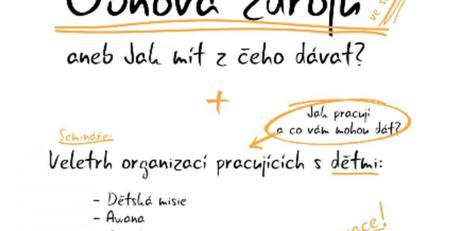 Obnova zdrojů
ve s
aneb Jak mít z čeho dávat?
+
Jak pracují
a co vám mohou dát?
Semináře:
Veletrh organizací pracujících s dětmi:
- Dětská misie
- Awana